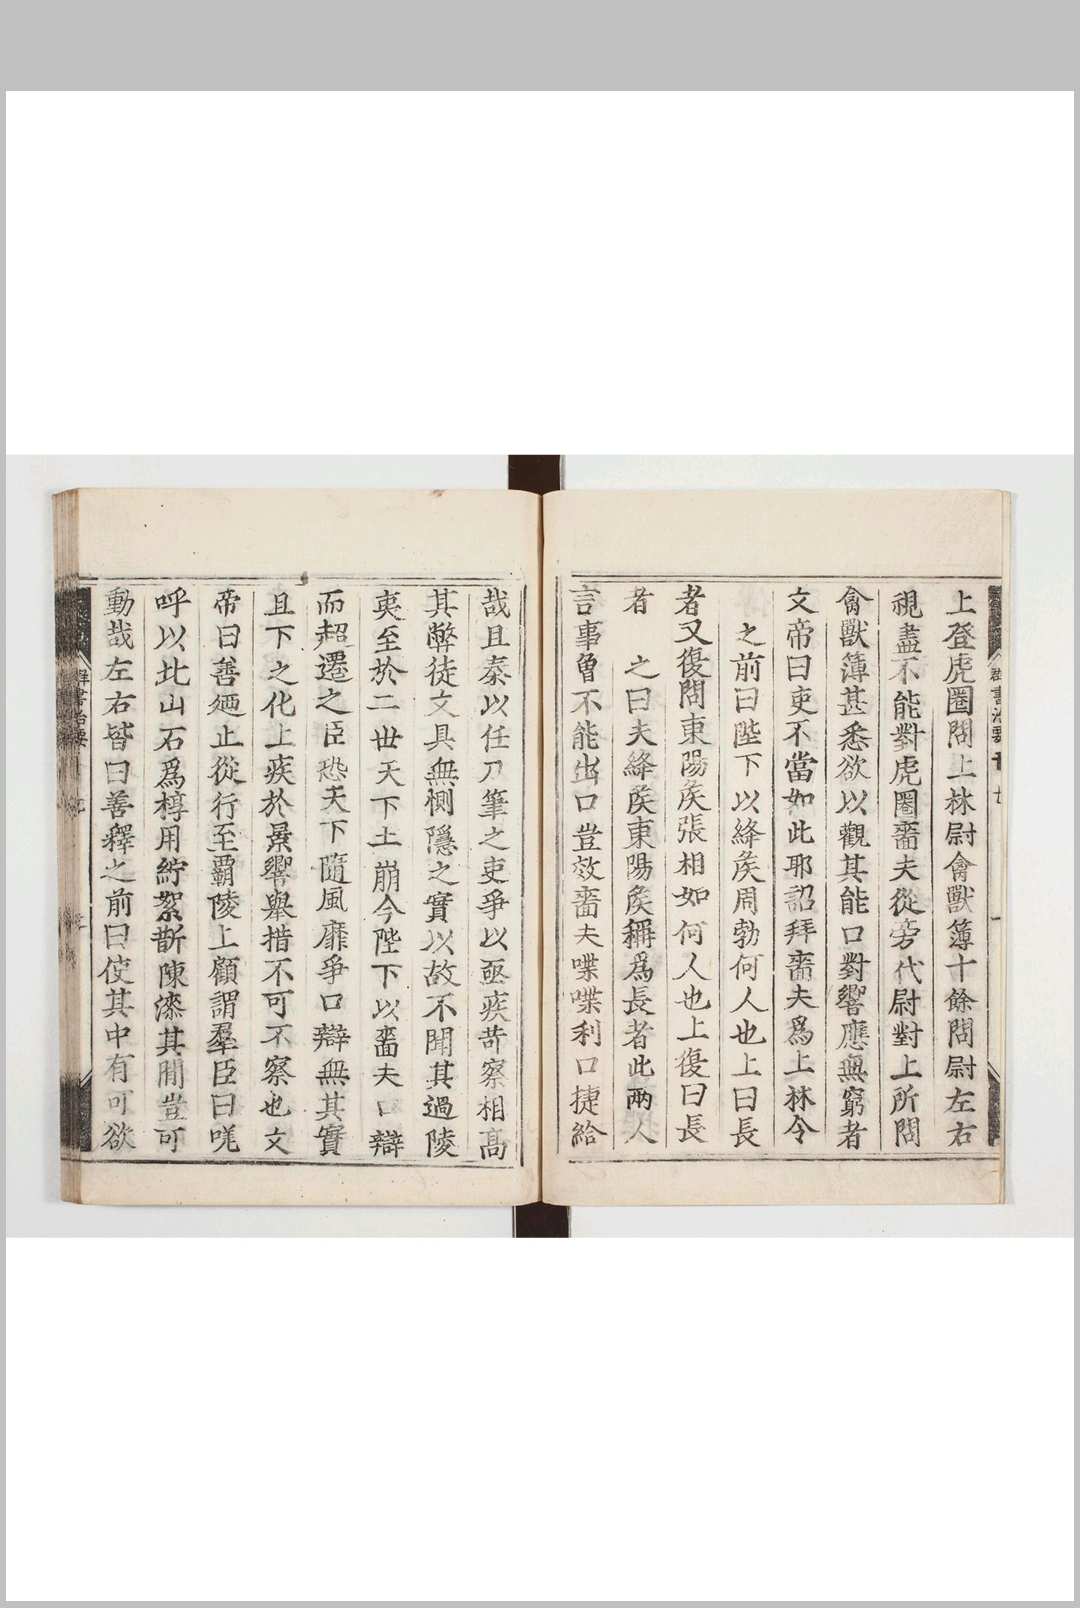 上登虎圈問上林尉禽獸簿十餘問尉左右
視盡不能對虎圈嗇夫從旁代尉對上所問
禽獸簿甚悉欲以觀其能口對響應無窮者
文帝曰吏不當如此耶詔拜嗇夫爲上林令
之前曰陛下以絳侯周勃何人也上曰長
者又復問東陽侯張相如何人也上復曰長
者　之曰夫絳侯東陽侯稱爲長者此兩人
言事曾不能出口豈效嗇夫喋喋利口捷給
哉且秦以任刀筆之吏爭以亟疾苛察相高
其弊徒文具無惻隱之實以故不聞其過陵
夷至於二世天下土崩今陛下以嗇夫口辯
而超遷之臣恐天下隨風靡爭口辯無其實
且下之化上疾於景響舉措不可不察也文
帝曰善廼止從行至霸陵上顧謂羣臣曰嗟
呼以此山石爲椁用紵絮斮陳漆其間豈可
動哉左右皆曰善釋之前曰使其中有可欲
群書治要
群書治要